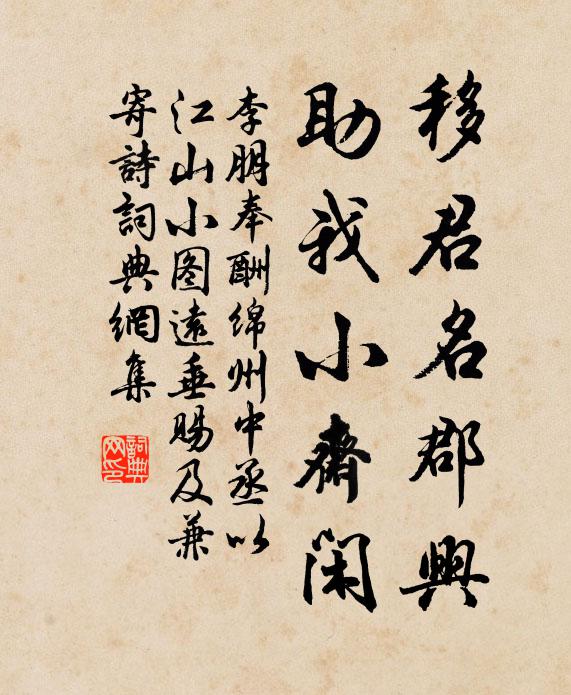 移君名郡興
助我小齋閑
李朋奉酬綿州中丞以
江山小图遠垂賜及兼
寄詩詞典網集
詞典
网印